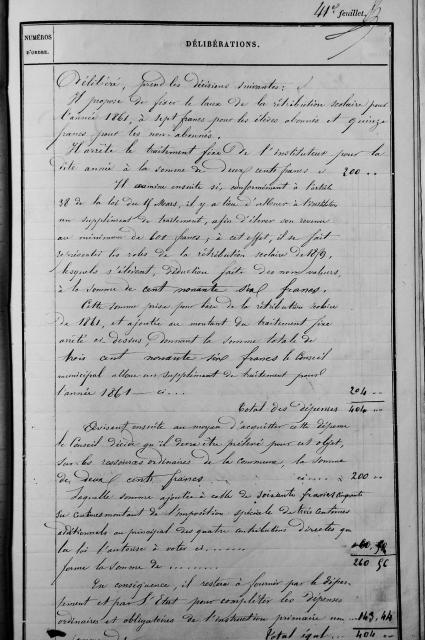 41e feuillet.
NUMÉROS
D'ORDRE.
DÉLIBÉRATIONS.
Délibéré, prend les décisions suivantes :
Il propose de fixer le taux de la rétribution scolaire pour
l'année 1861, à sept francs pour les élèves abonnés et quinze
francs pour les non-abonnés.
Il arrête le traitement fixe de l'instituteur pour la
dite année à la somme de deux cents francs ci 200 ..
Il examine ensuite si, conformément à l'article
38 de la loi du 15 Mars, il y a lieu d'allouer à l'instituteur
un supplément de traitement, afin d'élever son revenu
au minimum de 600 francs ; à cet effet, il se fait
représenter les rôles de la rétribution scolaire de 1859,
lesquels s'élèvent, déduction faite des non valeurs,
à la somme de cent nonante six francs.
Cette somme prise pour base de la rétribution scolaire
de 1861, et ajoutée au montant du traitement fixe
arrêté ci dessus, donnant la somme totale de
trois cent nonante six francs le Conseil
municipal alloue un supplément de traitement pour
l'année 1861 ci ... 204 ..
Total des dépenses 404 ..
Avisant ensuite au moyen d'acquitter cette dépense
le Conseil décide qu'il devra être prélevé pour cet objet,
sur les ressources ordinaires de la commune, la somme
de deux cents francs ci 200 ..
Laquelle somme ajoutée à celle de soixante francs cinquante
six centimes montant de l'imposition spéciale de trois centimes
additionnels au principal des quatre contributions directes que
la loi l'autorise à voter ci ........ 60 56
forme la somme de ......... 260 56
En conséquence, il restera à fournir par le dépar-
tement et par l'État pour compléter les dépenses
ordinaires et obligatoires de l'instruction primaire une ... 143,44
Total égal 404 ..